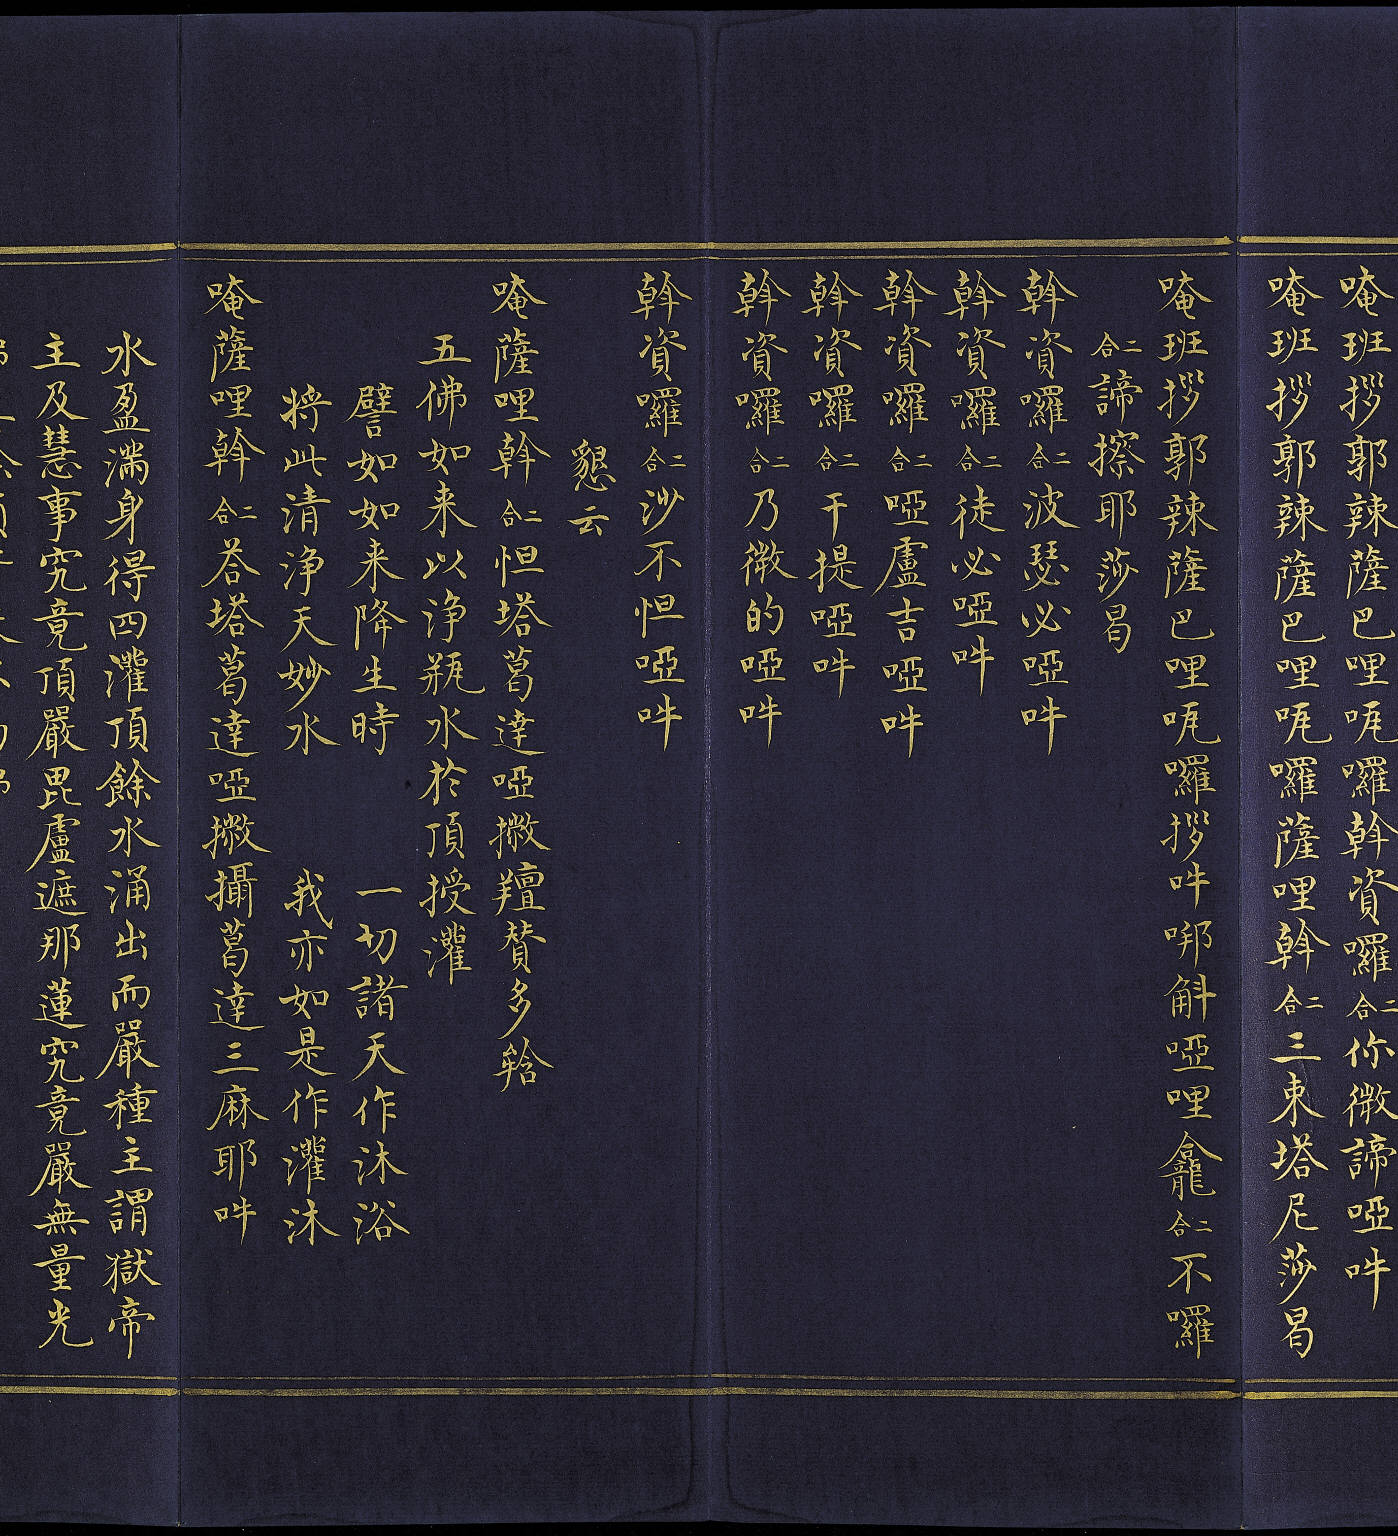 唵班拶郭辣薩巴哩咓囉斡資囉二合你微諦啞吽
唵班拶郭辣薩巴哩咓囉薩哩斡二合三東塔尼莎曷
唵班拶郭辣薩巴哩咓囉拶吽㖿斛啞哩龕二合不囉
二合諦擦耶莎曷
斡資囉二合波瑟必啞吽
斡資囉二合徒必啞吽
斡資囉二合啞盧吉啞吽
斡資囉二合干提啞吽
斡資囉二合乃微的啞吽
斡資囉二合沙不怛啞吽
懇云
唵薩哩斡二合怛塔葛達啞撒羶贊多
五佛如来以淨瓶水於頂授灌
譬如如来降生時 一切諸天作沐浴
將此清淨天妙水 我亦如是作灌沐
唵薩哩斡二合荅塔葛達啞撒攝葛達三麻耶吽
水盈滿身得四灌頂餘水涌出而嚴種主謂獄帝
主及慧事究竟頂嚴毘盧遮那蓮究竟嚴無量光